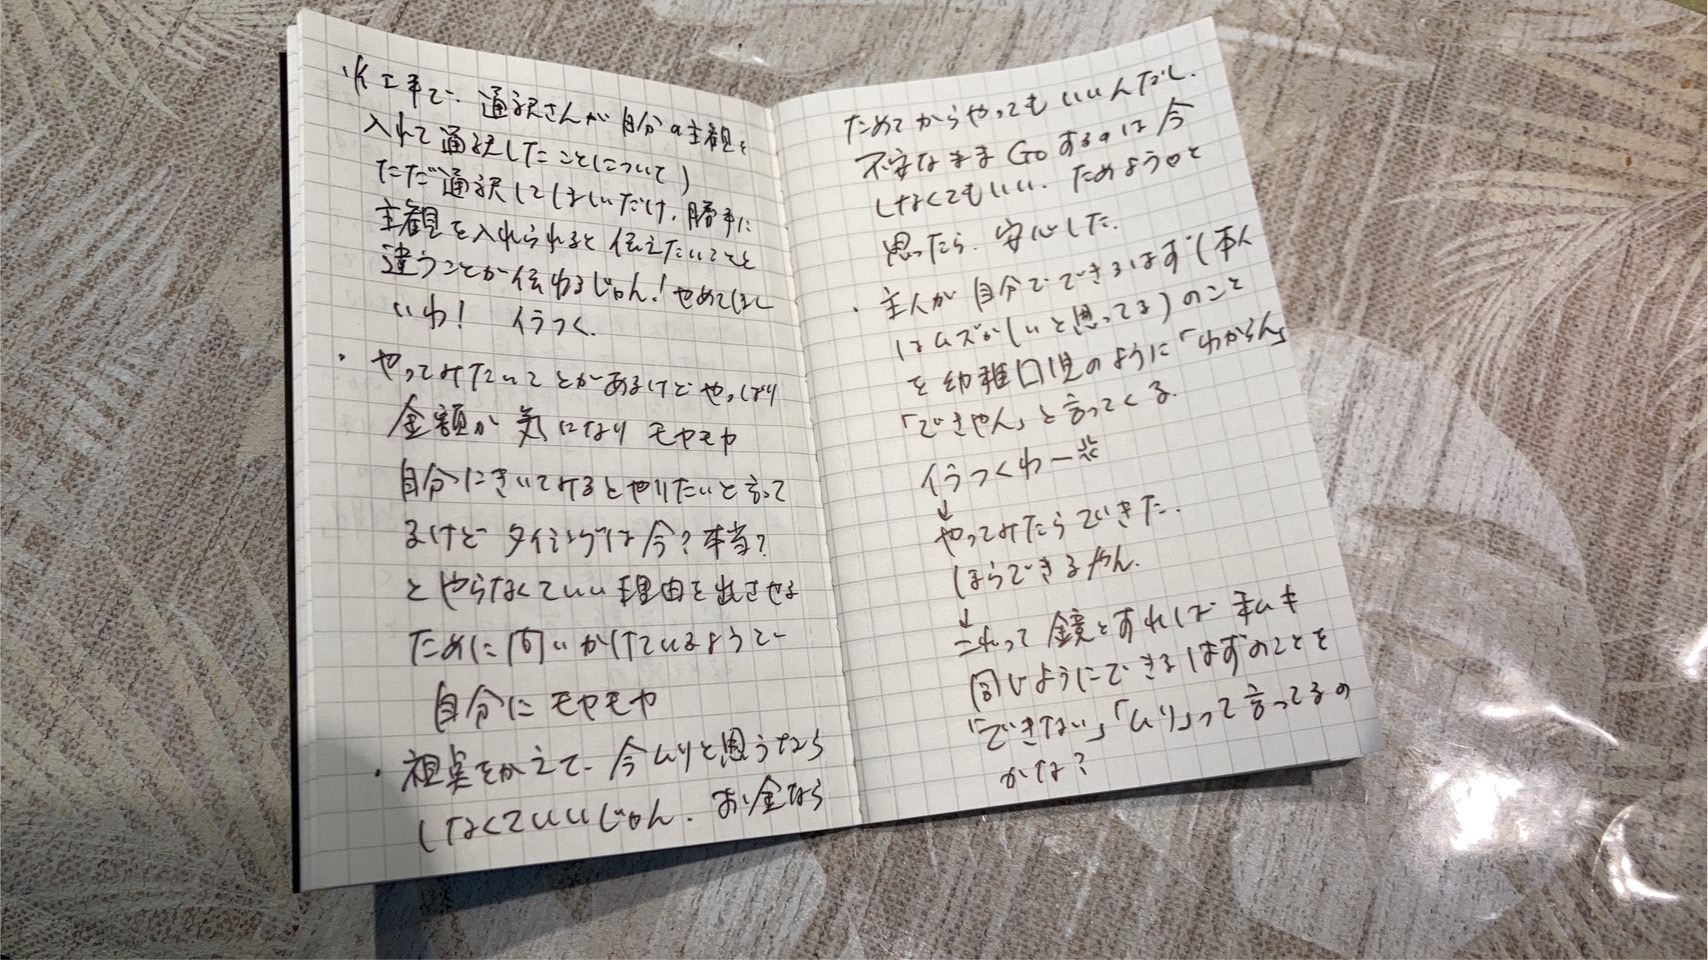 (仕事で、通訳さんが自分の主観を
入れて通訳したことについて)
ただ通訳してほしいだけ。勝手に
主観を入れられると伝えたいことと
違うことが伝わるじゃん!やめてほし
いわ! イラつく。
・やってみたいことがあるけどやっぱり
金額が気になりモヤモヤ
自分にきいてみるとやりたいと言って
るけどタイミングは今?本当?
とやらなくていい理由を出させる
ために問いかけているようで
自分にモヤモヤ
・視点をかえて、今ムリと思うなら
しなくていいじゃん。お金なら
ためてからやってもいいんだし、
不安なままGoするのは今
しなくてもいい。ためようと
思ったら、安心した。
・主人が自分でできるはず(本人
はムズかしいと思ってる)のこと
を幼稚口児のように「わからん」
「できやん」と言ってくる。
イラつくわー
↓
やってみたらできた。
ほらできるやん。
↓
これって鏡とすれば私も
同じようにできるはずのことを
「できない」「ムリ」って言ってるの
かな?